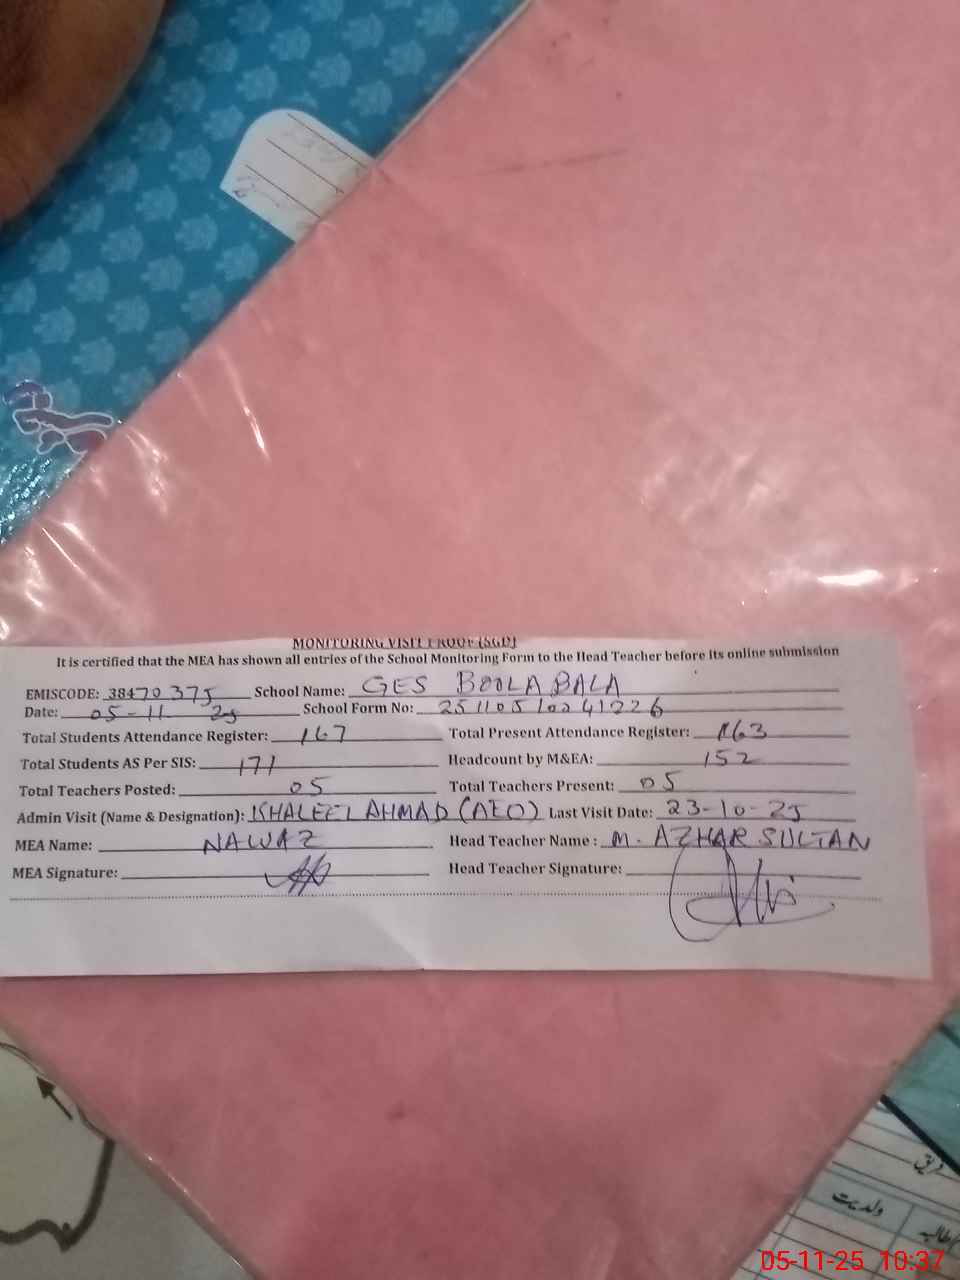 MONITORING VISIT PROOF (SGD)
It is certified that the MEA has shown all entries of the School Monitoring Form to the Head Teacher before its online submission
EMISCODE: 38470375 School Name: GES BOOLA BALA
Date: 05-11 25 School Form No: 251105100241226
Total Students Attendance Register: 167 Total Present Attendance Register: 163
Total Students AS Per SIS: 171 Headcount by M&EA: 152
Total Teachers Posted: 05 Total Teachers Present: 05
Admin Visit (Name & Designation): KHALEEL AHMAD (AEO) Last Visit Date: 23-10-25
MEA Name: NAWAZ Head Teacher Name : M. AZHAR SULTAN
MEA Signature: Head Teacher Signature:
ولدیت
طالبہ
05-11-25 10:37